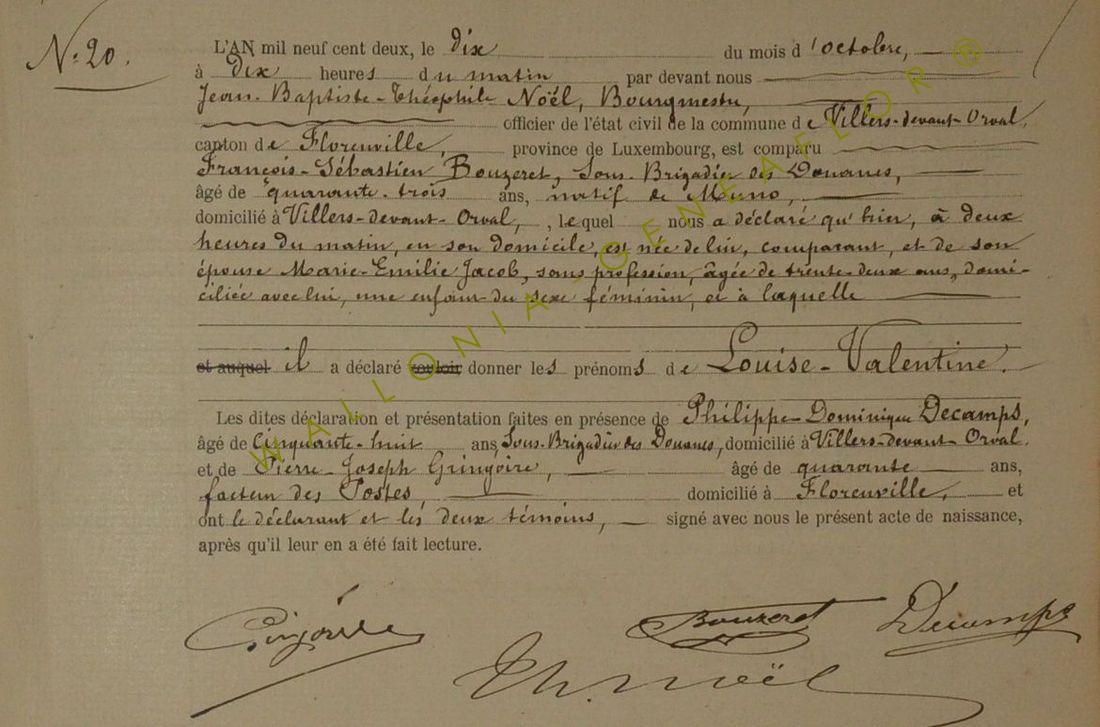 N.º 20.
L'AN mil neuf cent deux, le dix du mois d'octobre,
à dix heures du matin par devant nous
Jean-Baptiste-Théophile Noël, Bourgmestre,
officier de l'état civil de la commune de Villers-devant-Orval,
canton de Florenville, province de Luxembourg, est comparu
François-Sébastien Bouzeret, Sous-Brigadier des Douanes,
âgé de quarante-trois ans, natif de Muno,
domicilié à Villers-devant-Orval, , lequel nous a déclaré qu'hier, à deux
heures du matin, en son domicile, est née de lui, comparant, et de son
épouse Marie-Emilie Jacob, sans profession, âgée de trente-deux ans, domi-
ciliée avec lui, une enfant du sexe féminin, et à laquelle
et auquel il a déclaré vouloir donner les prénoms de Louise-Valentine.
Les dites déclaration et présentation faites en présence de Philippe-Dominique Decamps,
âgé de Cinquante-huit ans, Sous-Brigadier des Douanes, domicilié à Villers-devant-Orval
et de Pierre-Joseph Gringoire, âgé de quarante ans,
facteur des Postes, domicilié à Florenville, et
ont le déclarant et les deux témoins, signé avec nous le présent acte de naissance,
après qu'il leur en a été fait lecture.
Bouzeret Decamps
Th. Noël
WALLONIA-GENEAFLOR ®